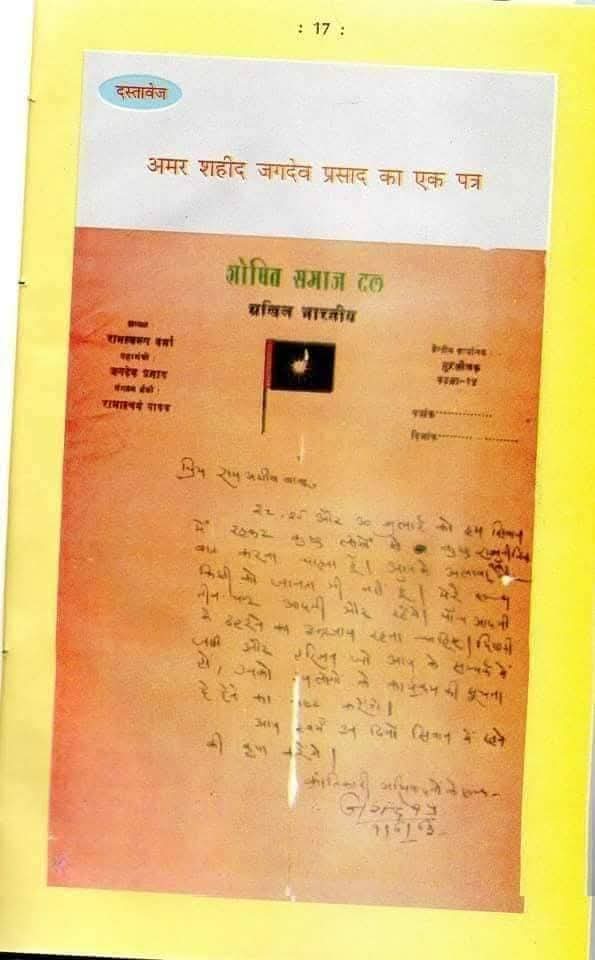 : 17 :
दस्तावेज
अमर शहीद जगदेव प्रसाद का एक पत्र
शोषित समाज दल
अखिल भारतीय
रामस्वरूप वर्मा
महामंत्री:
जगदेव प्रसाद
केन्द्रीय कार्यालय:
पटना-१४
पत्रांक
दिनांक
प्रिय राम
और ३० जुलाई को हम सिवान
में रहकर कुछ लोगों से कुछ राजनीतिक
बात करना चाहता हूँ। आपके अलावा
किसी को जानता भी नहीं हूँ। मेरे साथ
तीन-चार आदमी और रहेंगे। पाँच आदमी
के ठहरने का इन्तजाम रहना चाहिए।
और हरिजन जो आप के सम्पर्क में
हो, उनको के कार्यक्रम की सूचना
दे देने का कष्ट करेंगे।
आप स्वयं उन दिनों सिवान में रहने
की कृपा करेंगे।
क्रांतिकारी अभिवादनों के साथ-